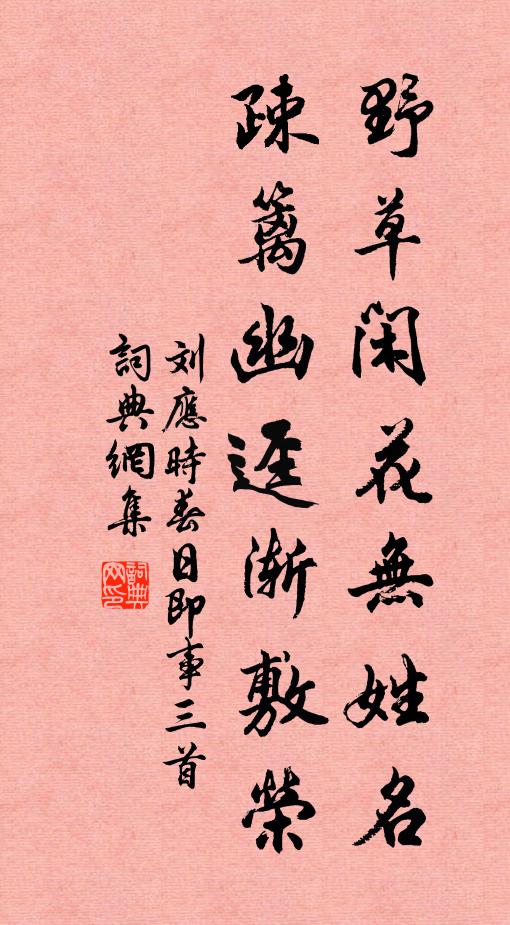 野草閑花無姓名
疎籬幽逕漸敷榮
刘應時春日即事三首
詞典網集
詞典網印